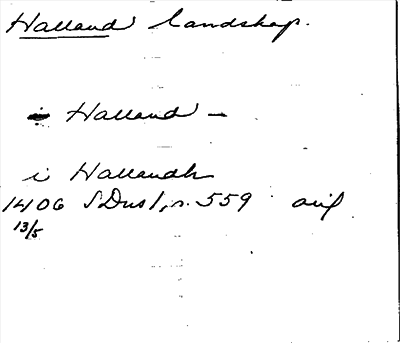 Halland landskap.
i Halland –
i Hallandh
1406 SDns 1, s. 559 avif
13/5